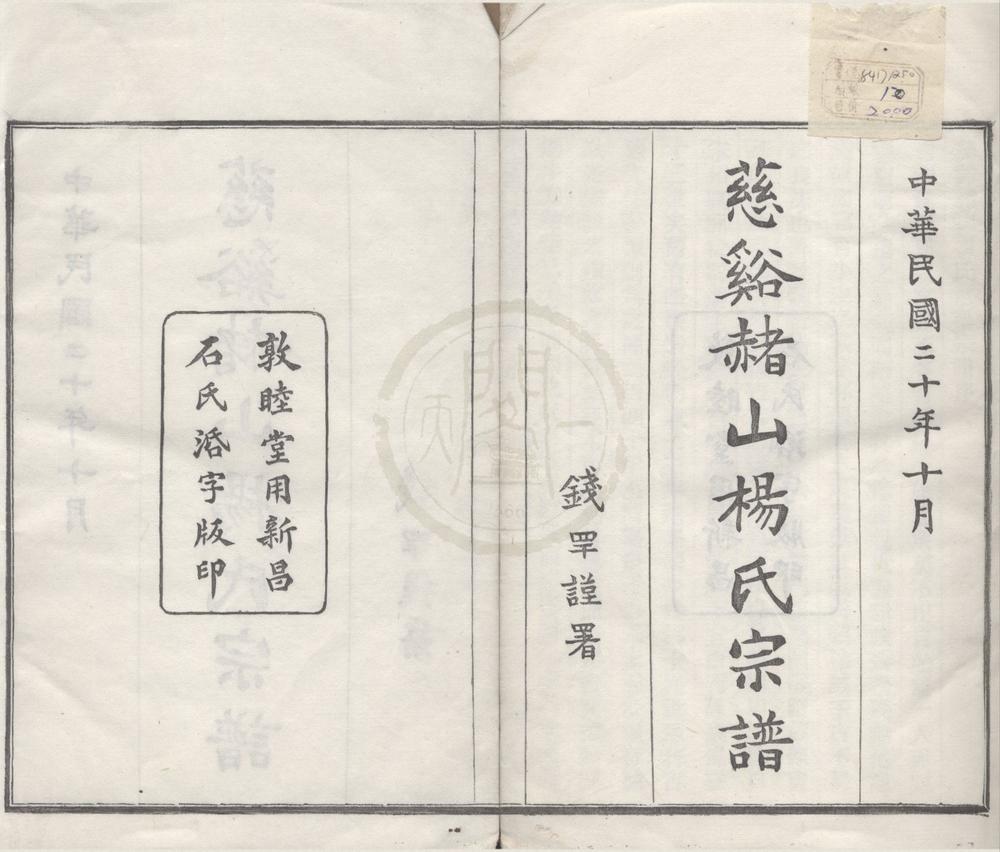 中華民國二十年十月
慈谿赭山楊氏宗譜
錢罕謹署
敦睦堂用新昌
石氏活字版印
2000